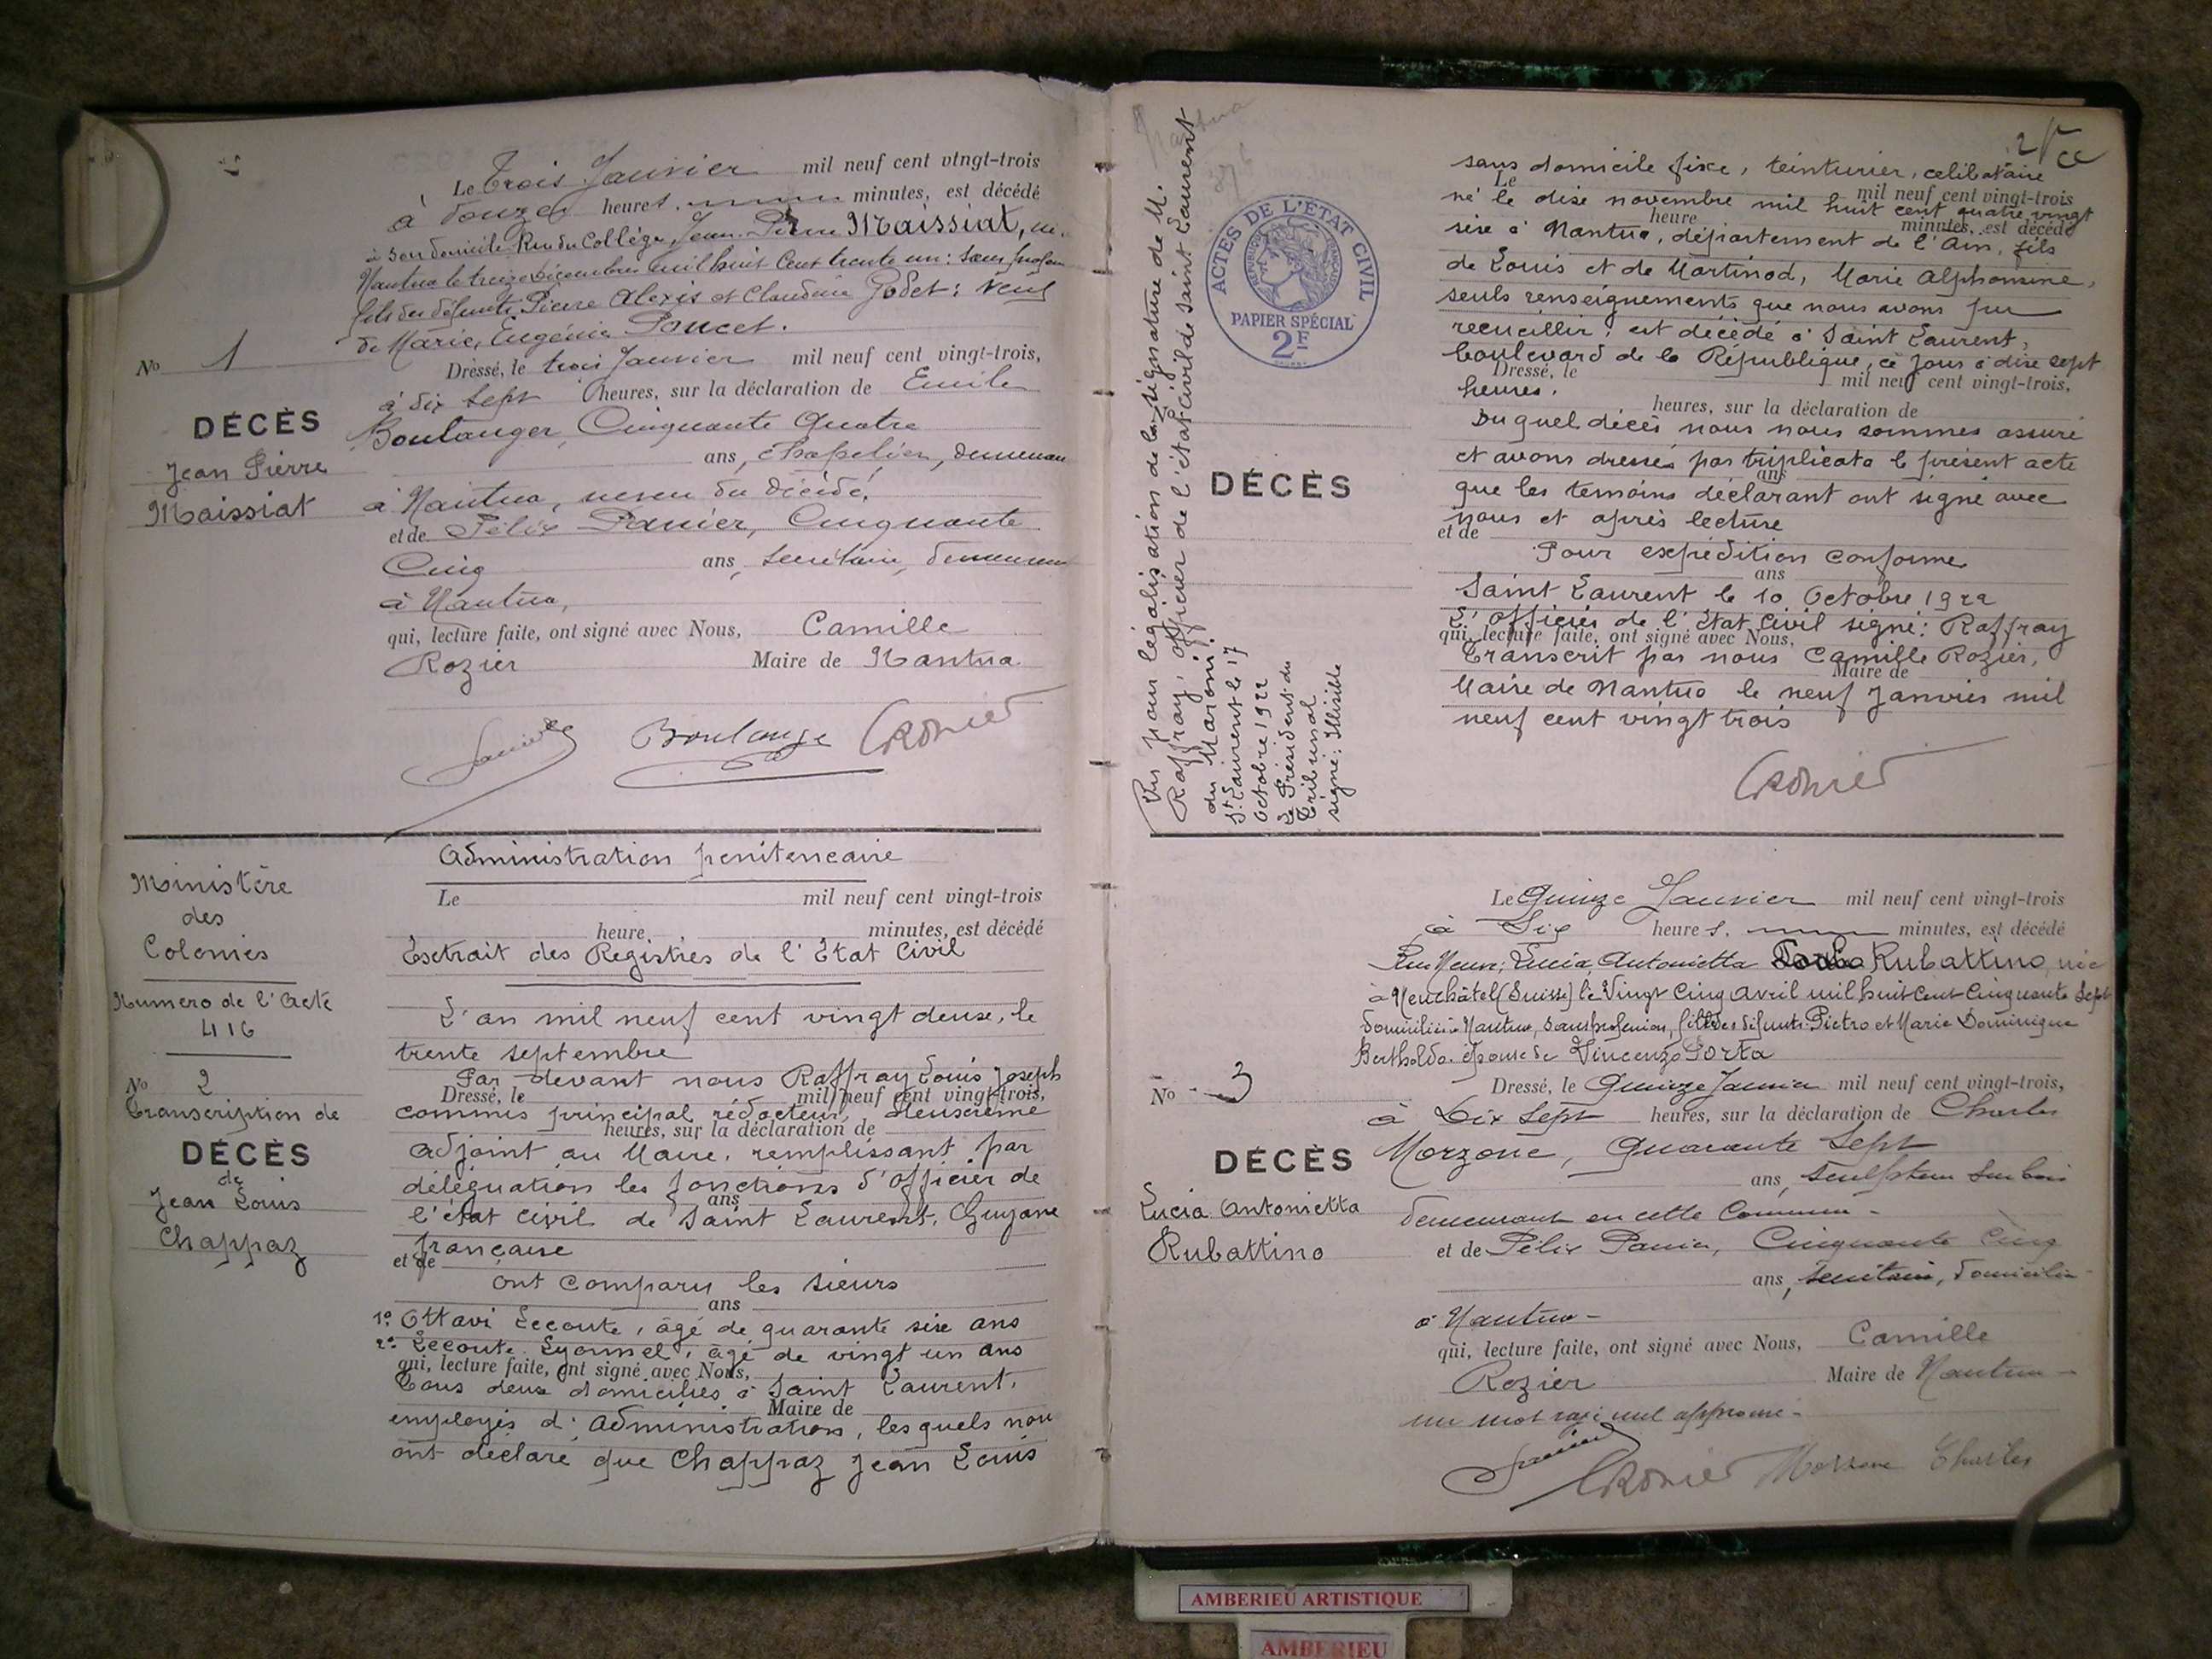 Le Trois Janvier mil neuf cent vingt-trois
à douze heures. minutes, est décédé
à son domicile Rue du Collège, Jean Pierre Maissiat, né à
Nantua le treize décembre mil huit cent trente un: sans profession
fils des défunts Pierre Alexis et Claudine Godet: Veuf
de Marie, Eugénie Poncet.
No 1
Dressé, le trois Janvier mil neuf cent vingt-trois,
à dix sept heures, sur la déclaration de Emile
DÉCÈS
Boulanger, Cinquante Quatre
Jean Pierre
ans, chapelier, demeurant
Maissiat
à Nantua, neveu du décédé.
et de Félix Panier, Cinquante
Cinq ans, secrétaire, demeurant
à Nantua,
qui, lecture faite, ont signé avec Nous, Camille
Rozier Maire de Nantua
Boulanger CRozier
Ministère
des
Colonies
Numero de l'Acte
416
No 2
Transcription de
DÉCÈS
de
Jean Louis
Chappaz
Administration penitencaire
Le mil neuf cent vingt-trois
heure minutes, est décédé
Extrait des Registres de l'Etat Civil
L'an mil neuf cent vingt deux, le
trente septembre
Par devant nous Raffray Louis Joseph
Dressé, le mil neuf cent vingt-trois,
commis principal rédacteur, deuxième
heures, sur la déclaration de
adjoint au Maire, remplissant par
délégation les fonctions d'officier de
ans
l'état civil de Saint Laurent, Guyane
française
et de
ont comparu les sieurs
ans
1º Ottavi Lecoute, âgé de quarante six ans
2º Lecoute Lyonnel, âgé de vingt un ans
qui, lecture faite, ont signé avec Nous,
Tous deux domiciliés à Saint Laurent,
Maire de
employés d'Administration, lesquels nou
ont déclaré que Chappaz Jean Louis
Nantua
Vu pour législation de la signature de M.
Raffray, officier de l'état civil de Saint Laurent
du Maroni.
St Laurent le 17
Octobre 1922
Le Président du
Tribunal
signé: Illisible
ACTES DE L'ÉTAT CIVIL
RÉPUBLIQUE FRANÇAISE
PAPIER SPÉCIAL
2F
DÉCÈS
2
sans domicile fixe, teinturier, celibataire
Le mil neuf cent vingt-trois
né le dix novembre mil huit cent quatre vingt
heure minutes, est décédé
six à Nantua, département de l'Ain, fils
de Louis et de Martinod, Marie Alphonsine,
seuls renseignements que nous avons pu
recueillir; est décédé à Saint Laurent,
boulevard de la République, ce jour à dix sept
Dressé, le mil neuf cent vingt-trois,
heures.
heures, sur la déclaration de
Du quel décès nous nous sommes assuré
et avons dressé par triplicata le présent acte
ans
que les temoins déclarant ont signé avec
nous et après lecture
et de
Pour expédition conforme
ans
Saint Laurent le 10 Octobre 1922
L'officier de l'Etat Civil signé: Raffray
qui, lecture faite, ont signé avec Nous,
Transcrit par nous Camille Rozier,
Maire de
Maire de Nantua le neuf Janvier mil
neuf cent vingt trois
CRozier
Le Quinze Janvier mil neuf cent vingt-trois
à Six heures. minutes, est décédé
Rue Neuve; Lucia, Antonietta Rubattino, née
à Neuchâtel (Suisse) le Vingt Cinq Avril mil huit Cent Cinquante Sept
domiciliée à Nantua, sans profession, fille des défunts Pietro et Marie Dominique
Bertholdo. épouse de Vincenzo Porta
No 3
Dressé, le Quinze Janvier mil neuf cent vingt-trois,
à Dix Sept heures, sur la déclaration de Charles
DÉCÈS
Morzone, Quarante Sept
ans, sculpteur sur bois
Lucia Antonietta
Rubattino
demeurant en cette Commune -
et de Félix Panier, Cinquante Cinq
ans, secrétaire, domicilié
à Nantua -
qui, lecture faite, ont signé avec Nous, Camille
Rozier Maire de Nantua -
un mot rayé nul approuvé -
CRozier Morzone Charles
AMBERIEU ARTISTIQUE
AMBERIEU